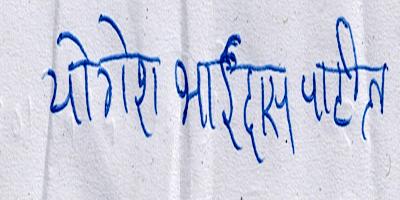 योगेश भाईदास पाटील